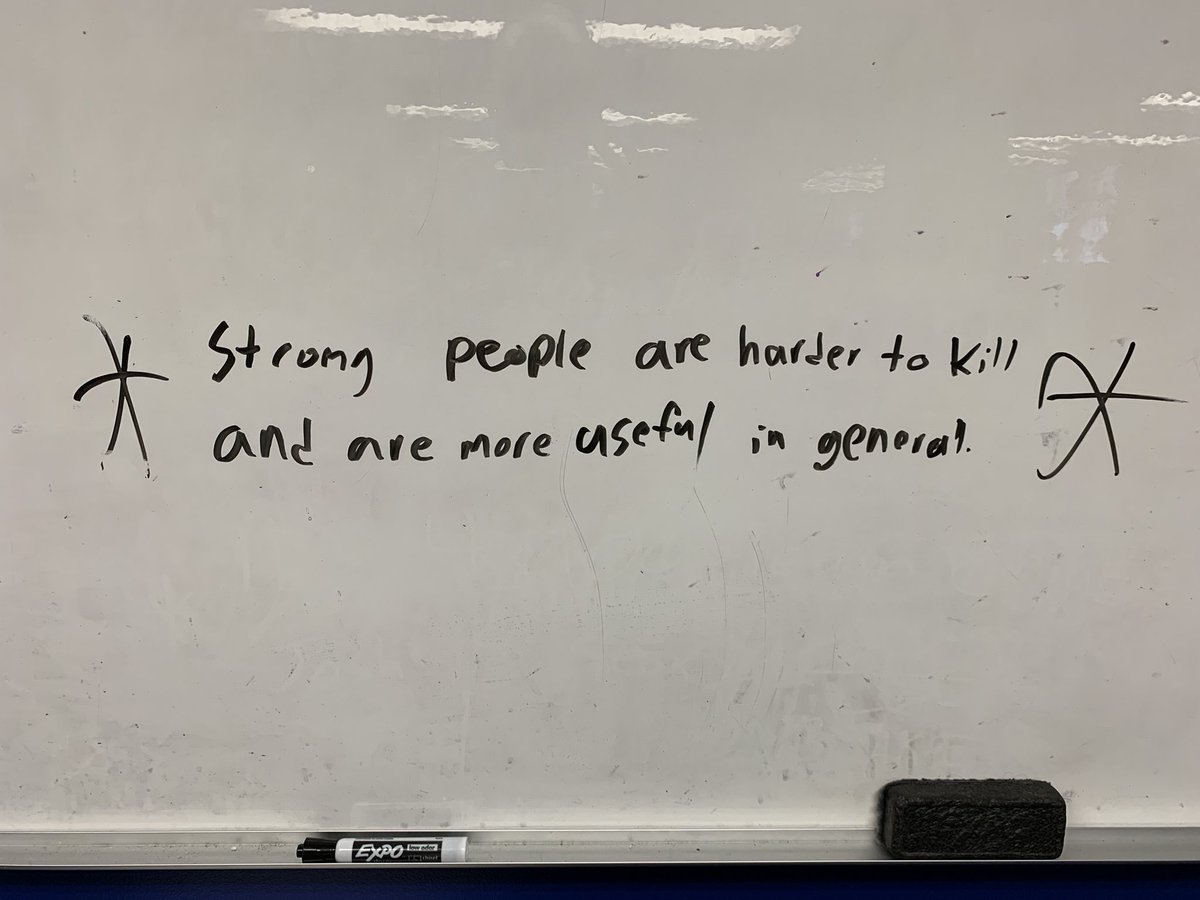 Strong people are harder to kill
and are more useful in general.
EXPO low odor